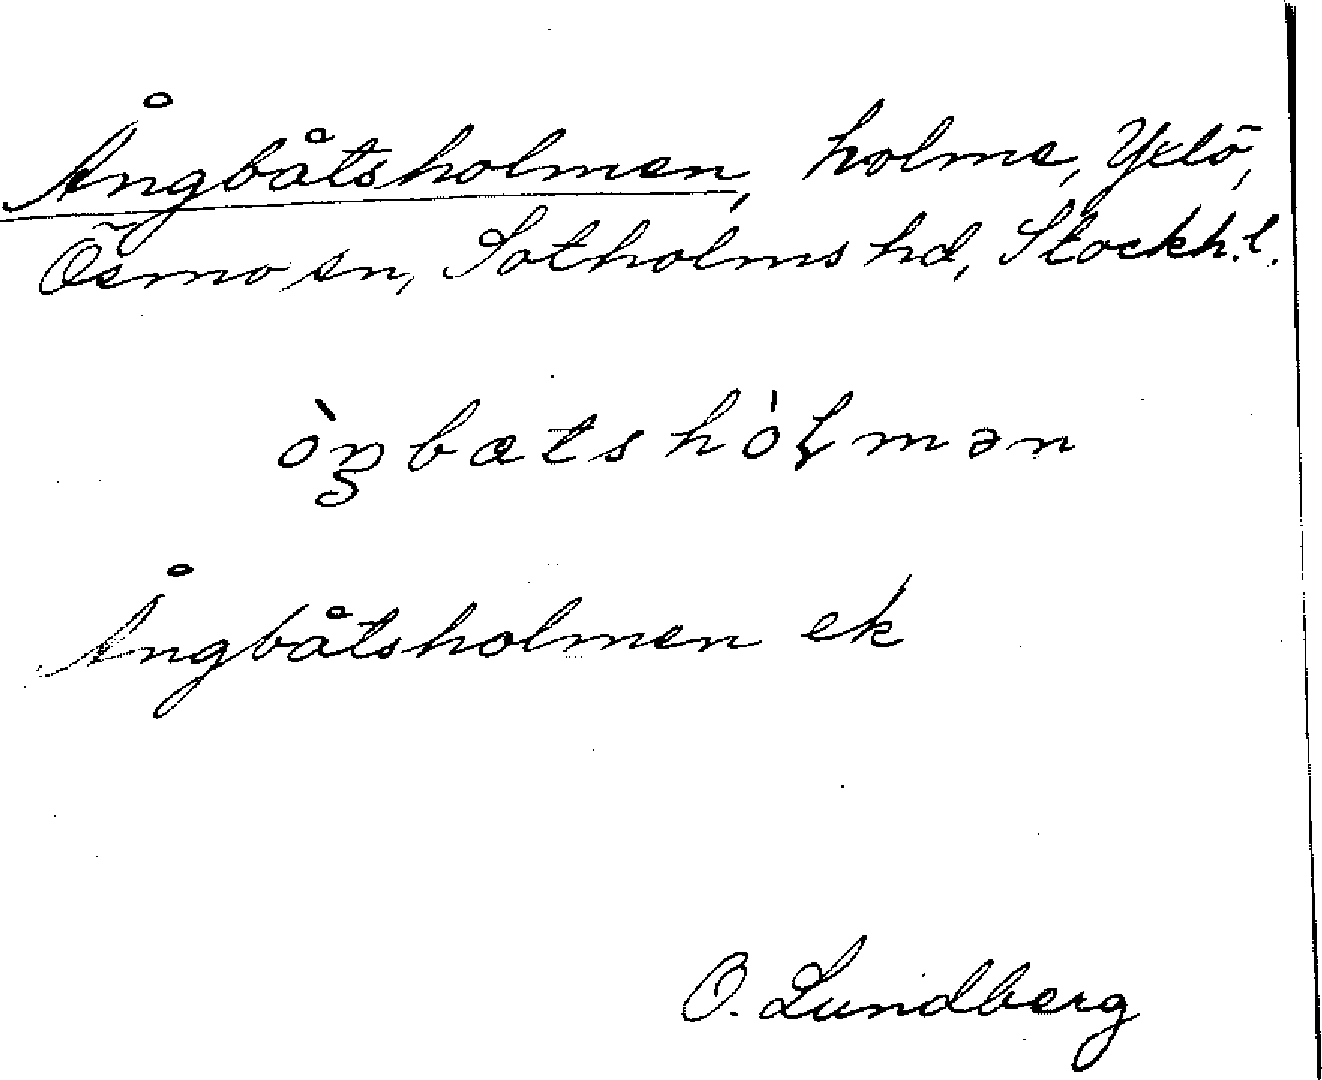 Ångbåtsholmen, holme, Yxlö,
Ösmo sn, Sotholms hd, Stockh. l.
ò̀ŋbatshòlmən
Ångbåtsholmen ek
O. Lundberg